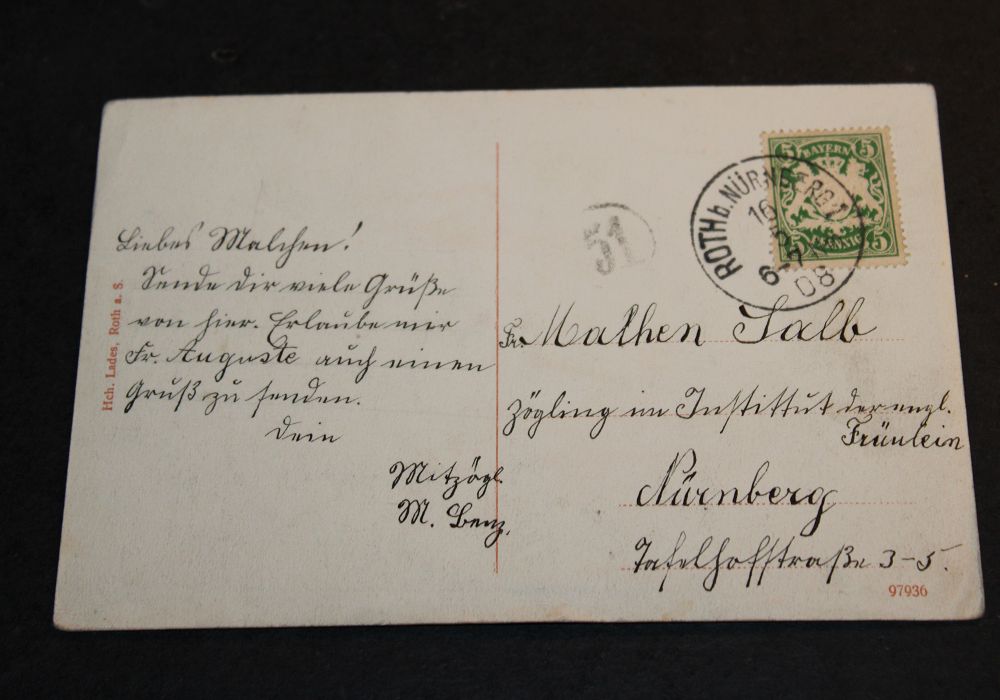 Liebes Malchen!
Sende dir viele Grüße
von hier. Erlaube mir
Fr. Auguste auch einen
Gruß zu senden.
Dein
Mitzögl.
M. Benz.
Hch. Lades, Roth a. S.
51
ROTH b. NÜRNBERG
16
6-7
08
5 BAYERN 5
5 PFENNIG 5
Fr. Malchen Salb
Zögling im Instittut der engl.
Fräulein
Nürnberg
Tafelhofstraße 3-5.
97936